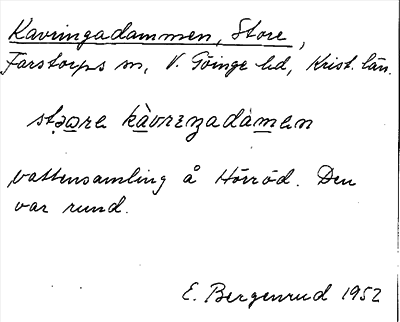 Kavringadammen, Store,
Farstorps sn, V. Göinge hd, Krist. län.
vattensamling å Hörröd. Den
var rund.
E. Bergenrud 1952